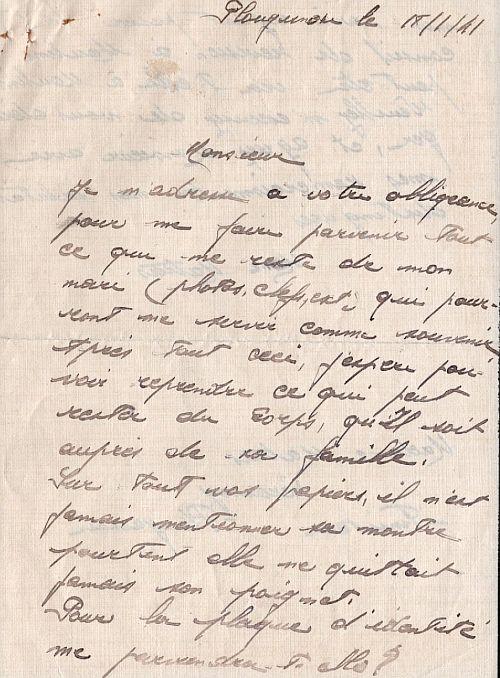 le 18/1/41
Monsieur
Je m'adresse a votre obligeance,
pour me faire parvenir tout
ce qui me reste de mon
mari (photos, clefs, ect) qui pour-
ront me servir comme souvenir
Après tout ceci, j'espere pou-
voir reprendre ce qui peut
rester du corps, qu'Il soit
auprès de sa famille.
Sur tout vos papiers, il n'est
jamais mentionner sa montre
pourtent elle ne quittait
jamais son poignet.
Pour la plaque d'identité
me parviendra-t-elle?